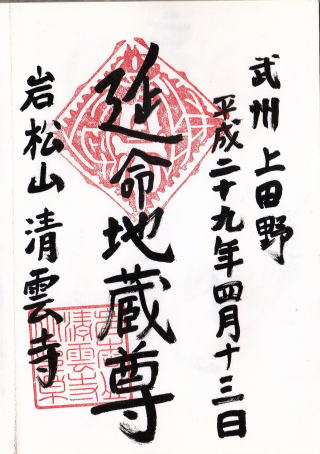 武州 上田野
平成二十九年四月十三日
延命地蔵尊
岩松山 清雲寺